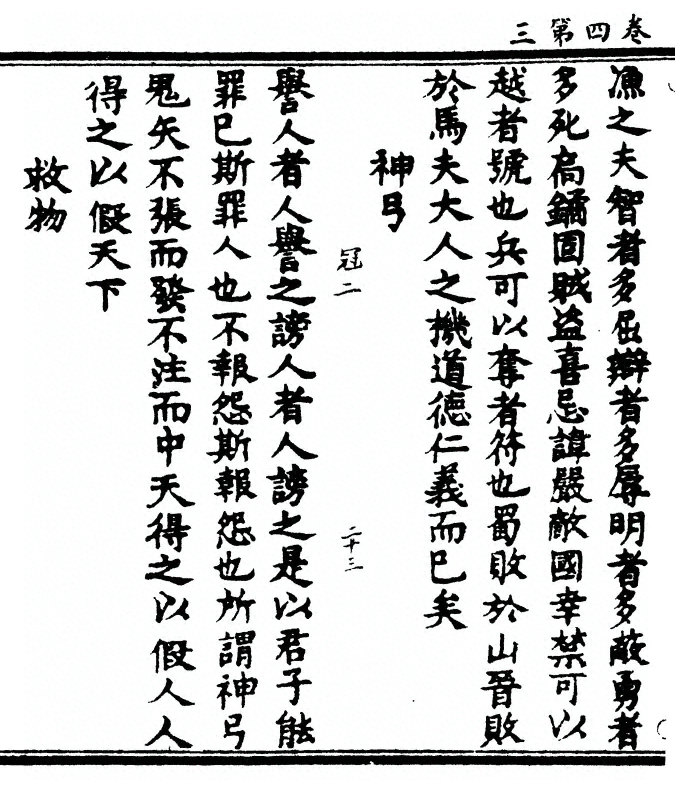 卷四第三
漁之夫智者多屈辯者多辱明者多蔽勇者
多死扃鐍固賊盜喜忌諱嚴敵國幸禁可以
越者號也兵可以奪者符也蜀敗於山晉敗
於馬夫大人之機道德仁義而已矣
神弓
冠二
二十三
譽人者人譽之謗人者人謗之是以君子能
罪己斯罪人也不報怨斯報怨也所謂神弓
鬼矢不張而發不注而中天得之以假人人
得之以假天下
救物